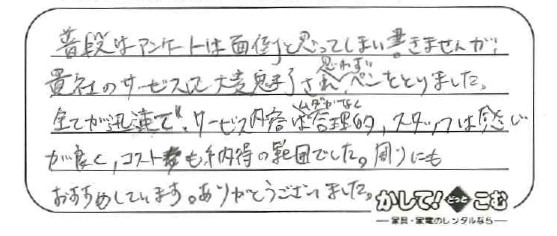 普段はアンケートは面倒と思ってしまい書きませんが、
貴社のサービスに大変魅了され思わずペンをとりました。
全てが迅速で、サービス内容はムダがなく合理的、スタッフは感じ
が良く、コストも納得の範囲でした。周りにも
おすすめしています。ありがとうございました。
かして!どっとこむ
家具・家電のレンタルなら